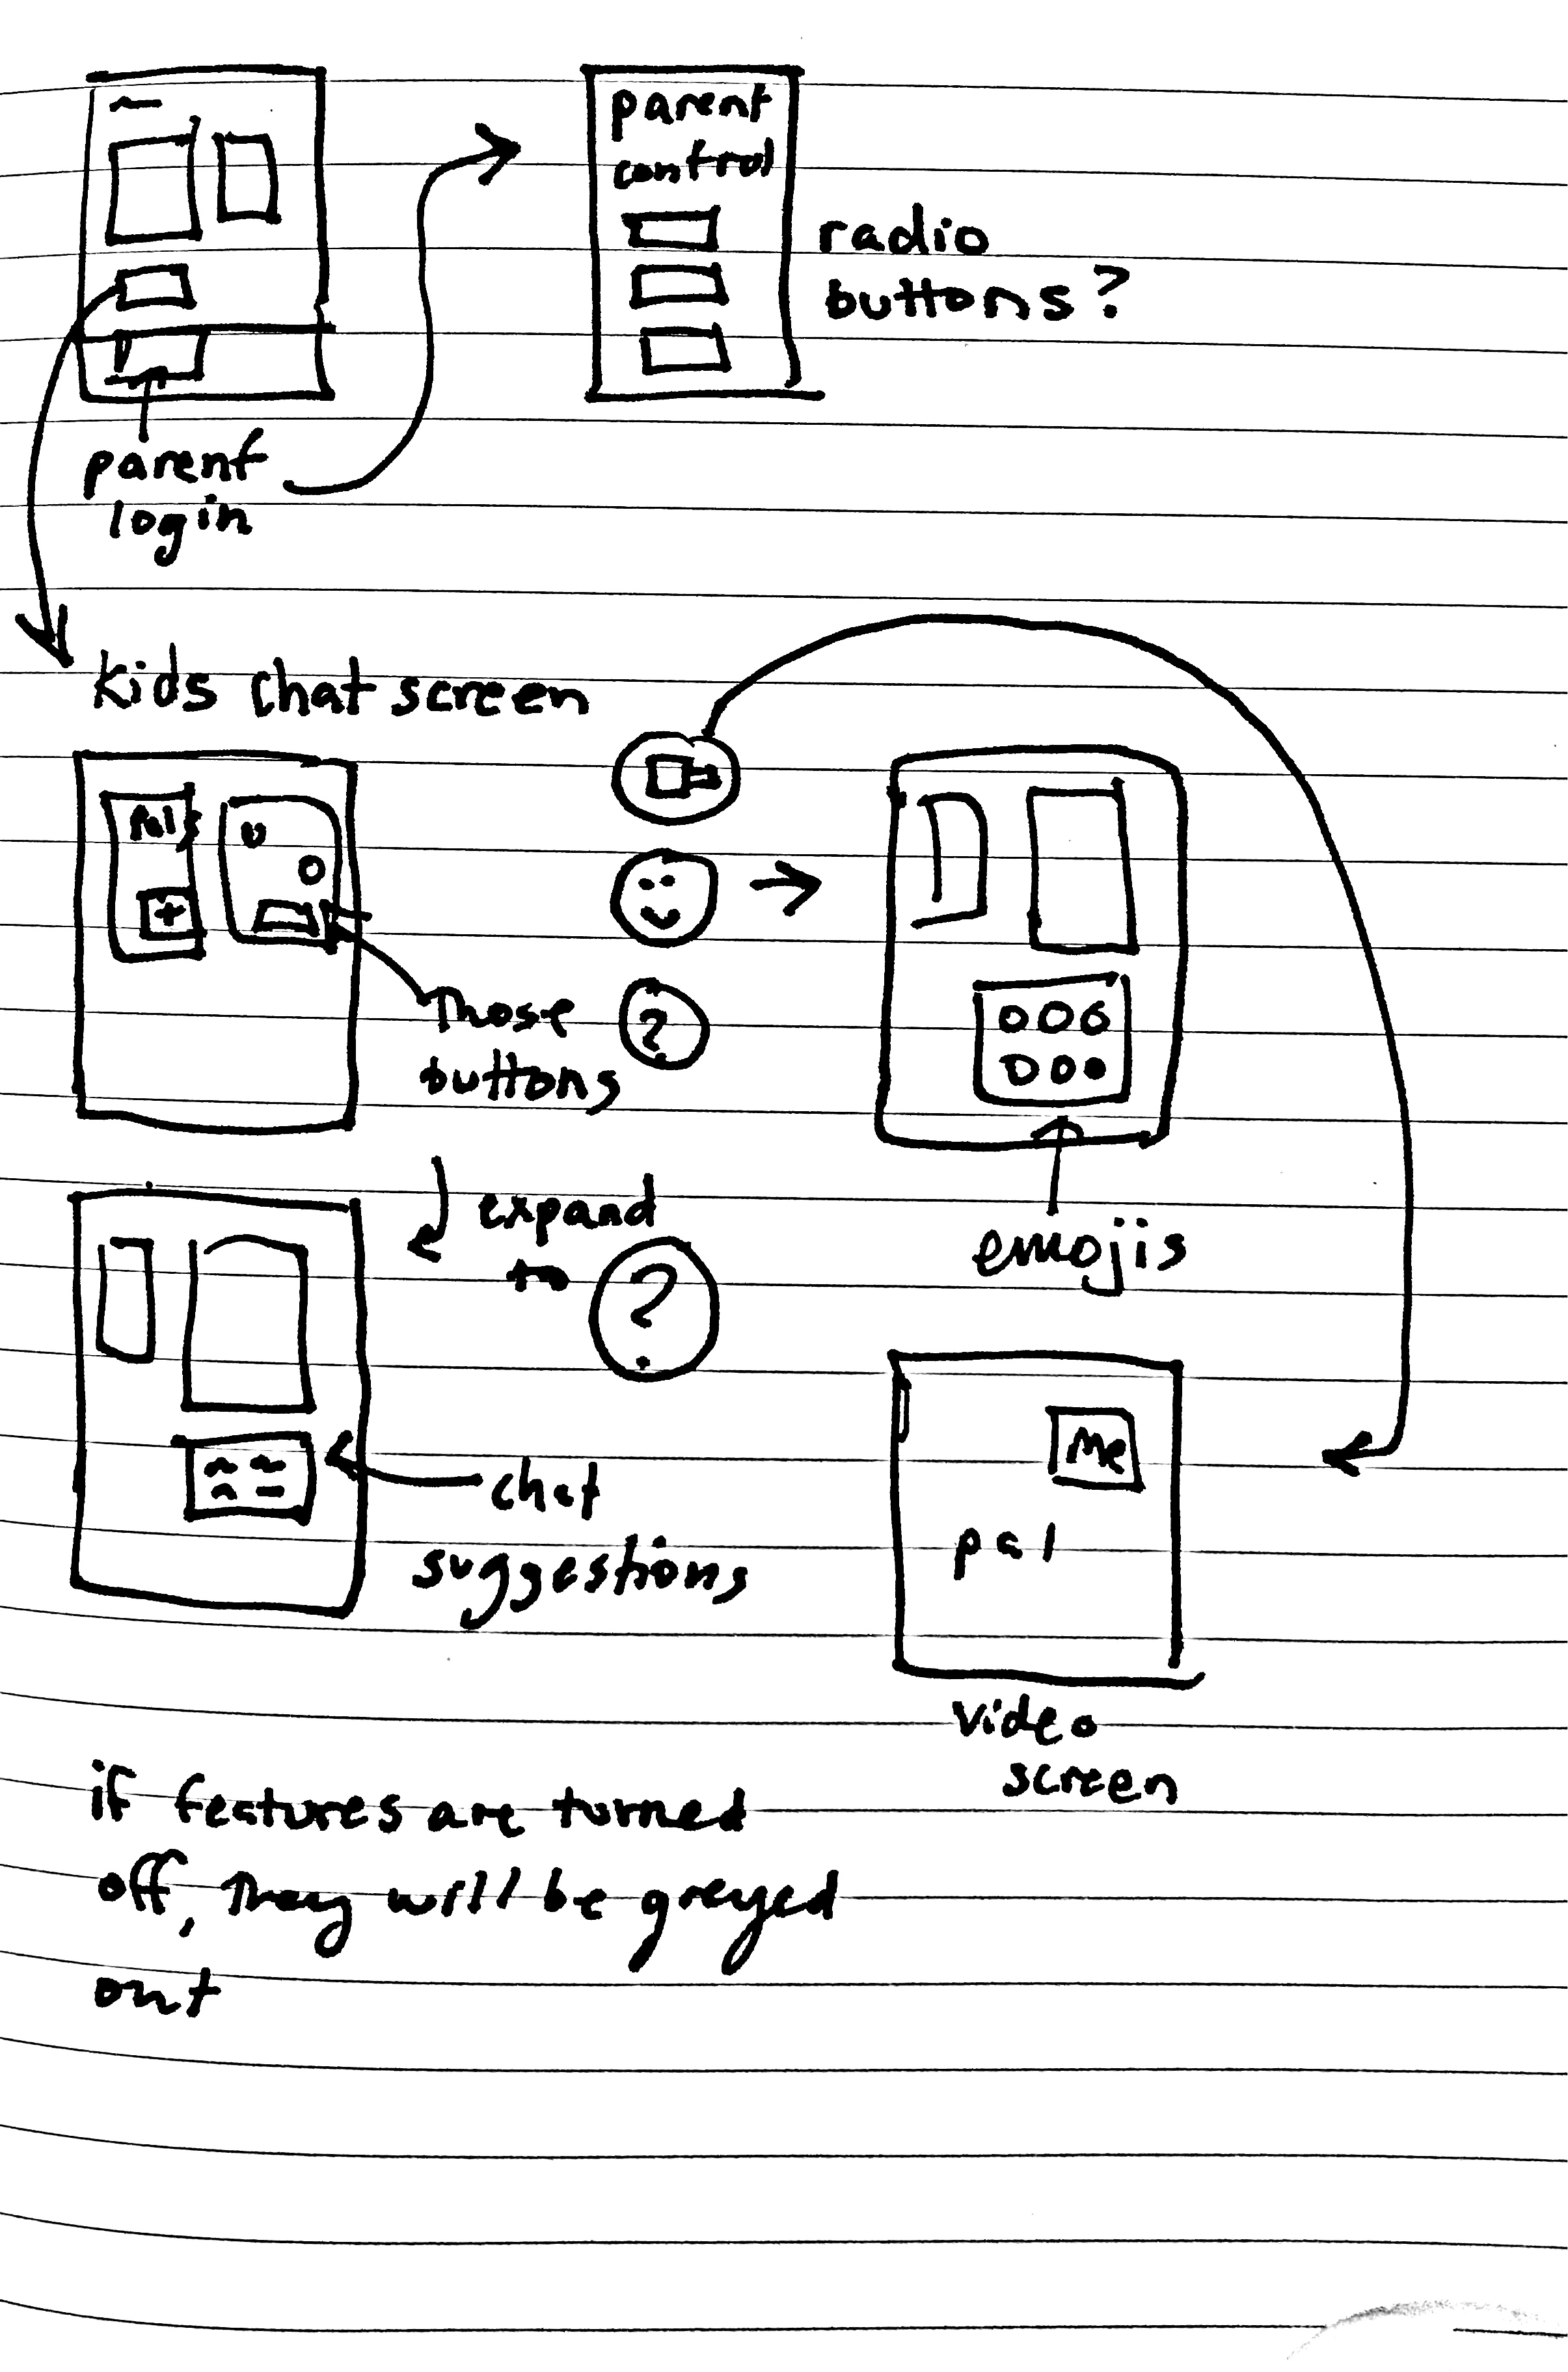 parent
control
radio
buttons?
parent
login
Kids chat screen
Pals
+
?
Those
buttons
emojis
expand
to
?
chat
suggestions
Me
pal
video
screen
if features are turned
off, they will be greyed
out